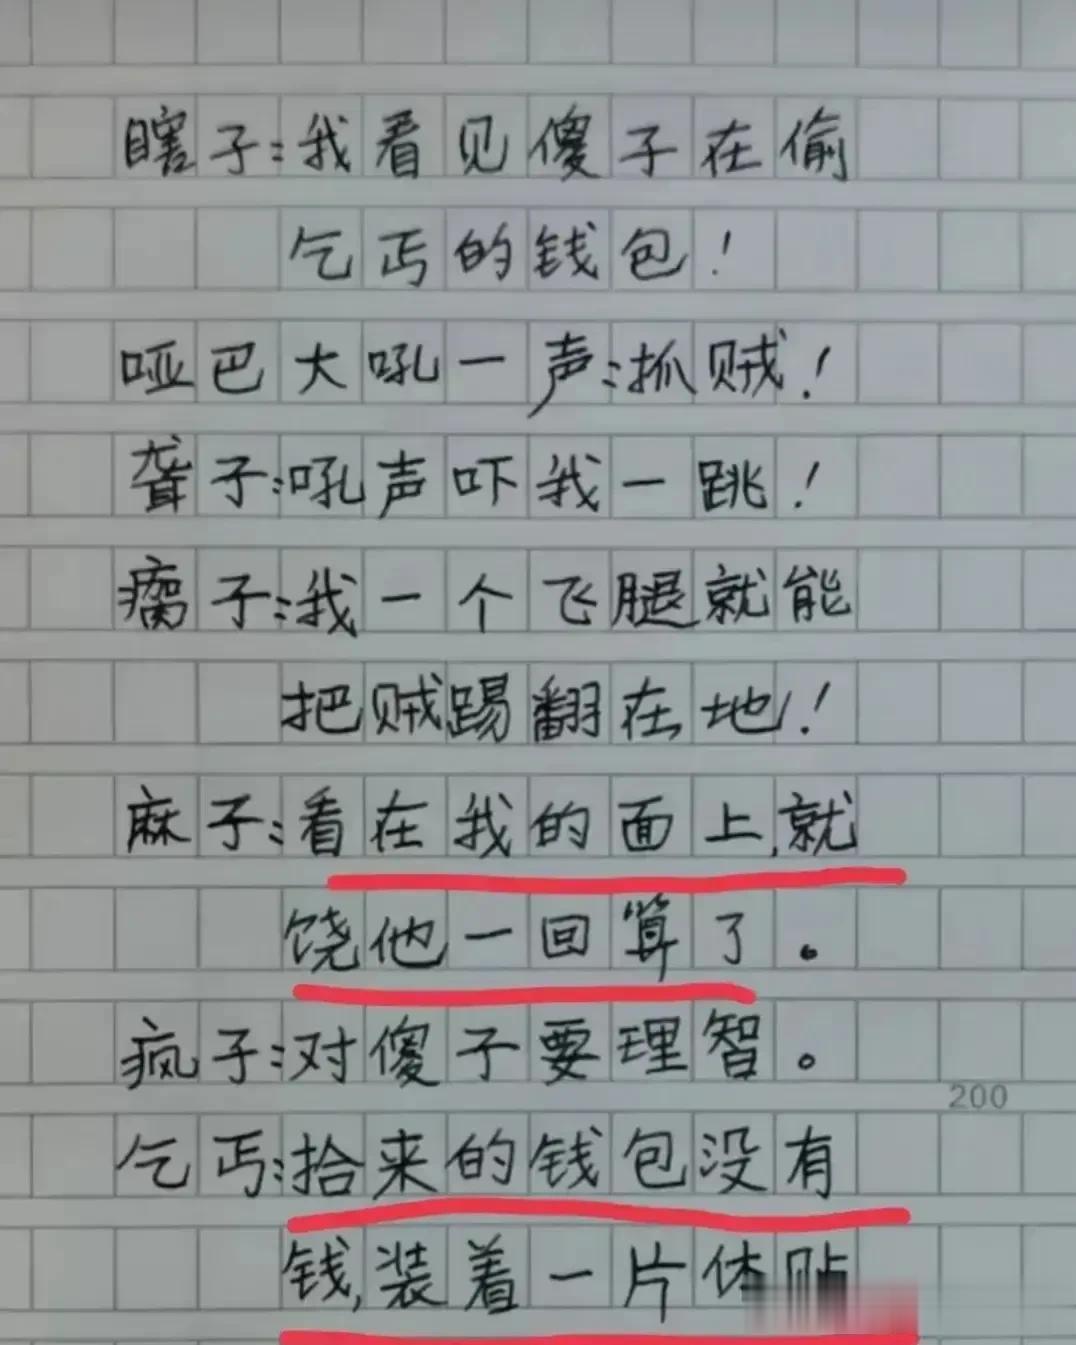 瞎子:我看见傻子在偷
乞丐的钱包!
哑巴大吼一声:抓贼!
聋子:吼声吓我一跳!
瘸子:我一个飞腿就能
把贼踢翻在地!
麻子:看在我的面上,就
饶他一回算了。
疯子:对傻子要理智。
200
乞丐:拾来的钱包没有
钱,装着一片体贴